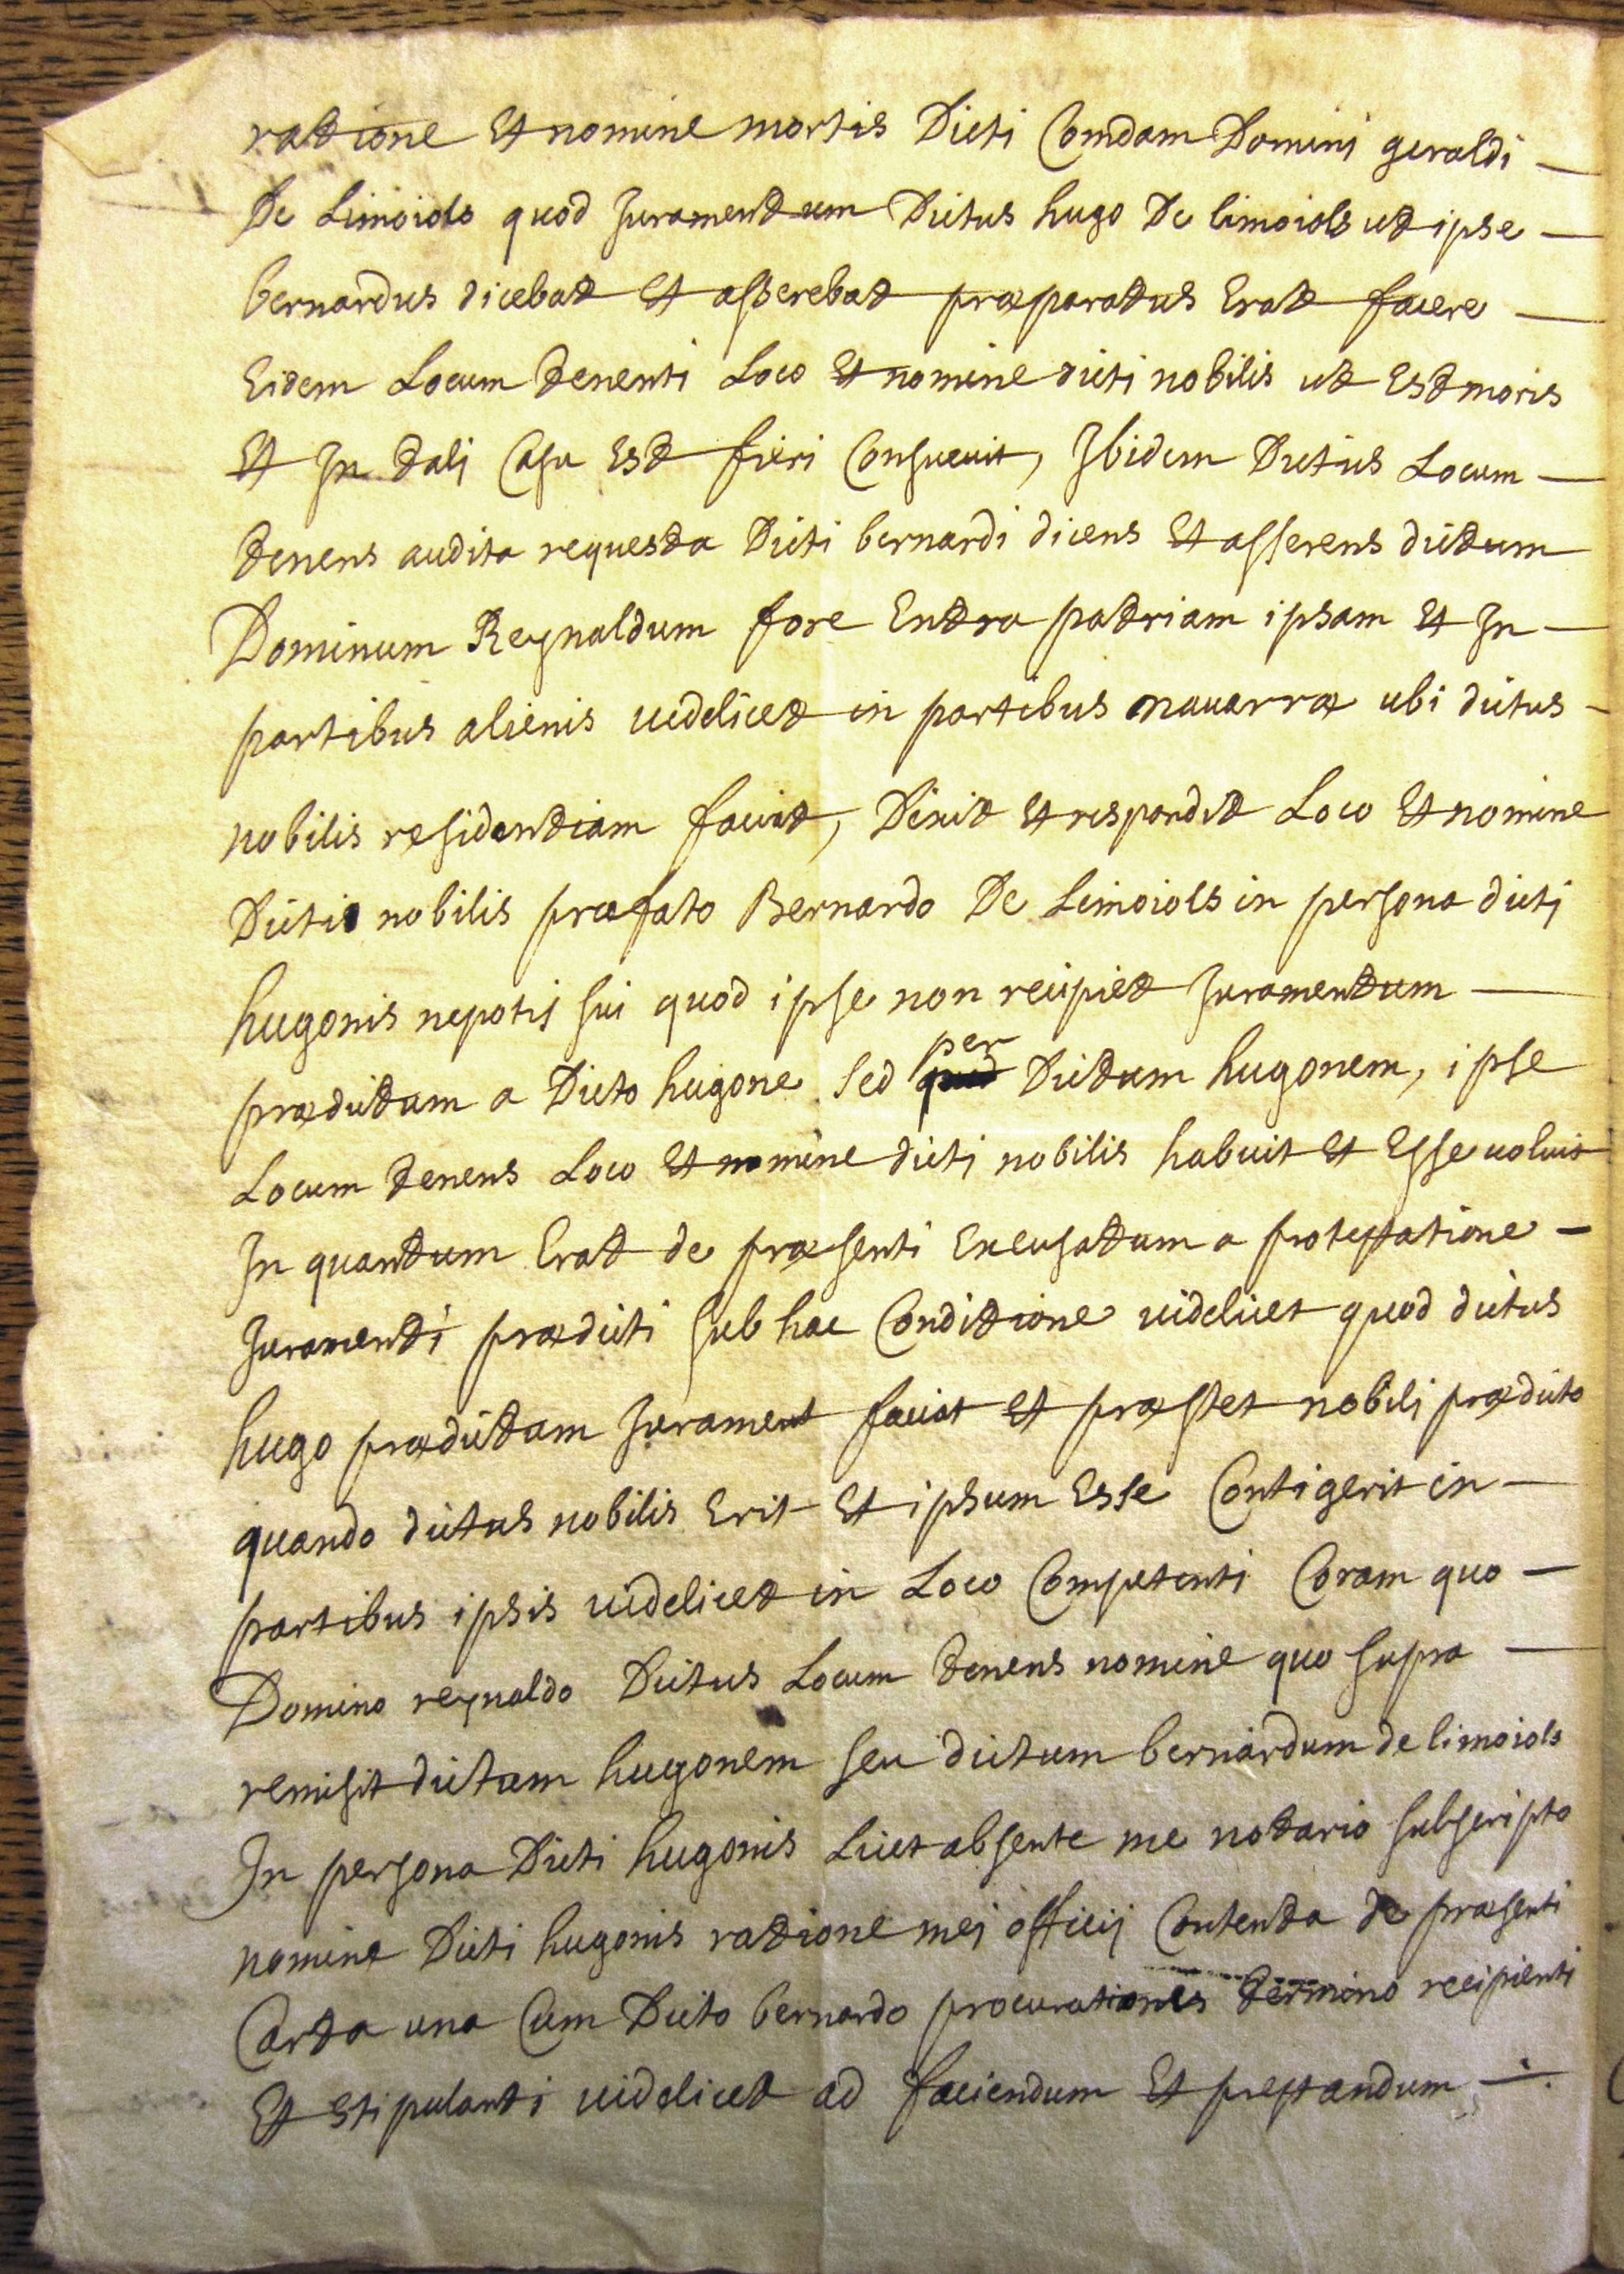 ratione Et nomine mortis Dicti Comdam Domini geraldi —
De Limoiols quod Juramentum Dictus hugo De limoiols ut ipse —
bernardus dicebat Et asserebat præparatus Erat facere —
Eidem Locum tenenti Loco Et nomine dicti nobilis ut Est moris
Et In tali Casu Est fieri Consuevit, Ibidem Dictus Locum —
tenens audita requesta Dicti bernardi dicens Et asserens dictum
Dominum Reynaldum fore Entra patriam ipsam Et In —
partibus alienis videlicet in partibus navarræ ubi dictus —
nobilis residentiam faciat, Dixit Et respondit Loco Et nomine
Dicti nobilis præfato Bernardo De Limoiols in persona dicti
hugonis nepotis sui quod ipse non recipiet Juramentum —
prædictam a Dicto hugone sed per Dictum hugonem, ipse
Locum tenens Loco Et nomine dicti nobilis habuit Et Esse voluit
In quantum Erat de præsenti Excusatum a protestatione —
Juramenti prædicti sub hac Conditione videlicet quod dictus
hugo prædictam Jurament faciat Et præstet nobili prædicto
quando dictus nobilis Erit Et ipsum Esse Contigerit in —
partibus ipsis videlicet in Loco Competenti Coram quo —
Domino reynaldo Dictus Locum tenens nomine quo supra —
remisit dictam hugonem seu dictum bernardum de limoiols
In persona Dicti hugonis Licet absente me notario subscripto
nomine Dicti hugonis ratione mej officij Contenta de præsenti
Carta una Cum Dicto bernardo procurationis termino recipienti
Et stipulanti videlicet ad faciendum Et prestandum —